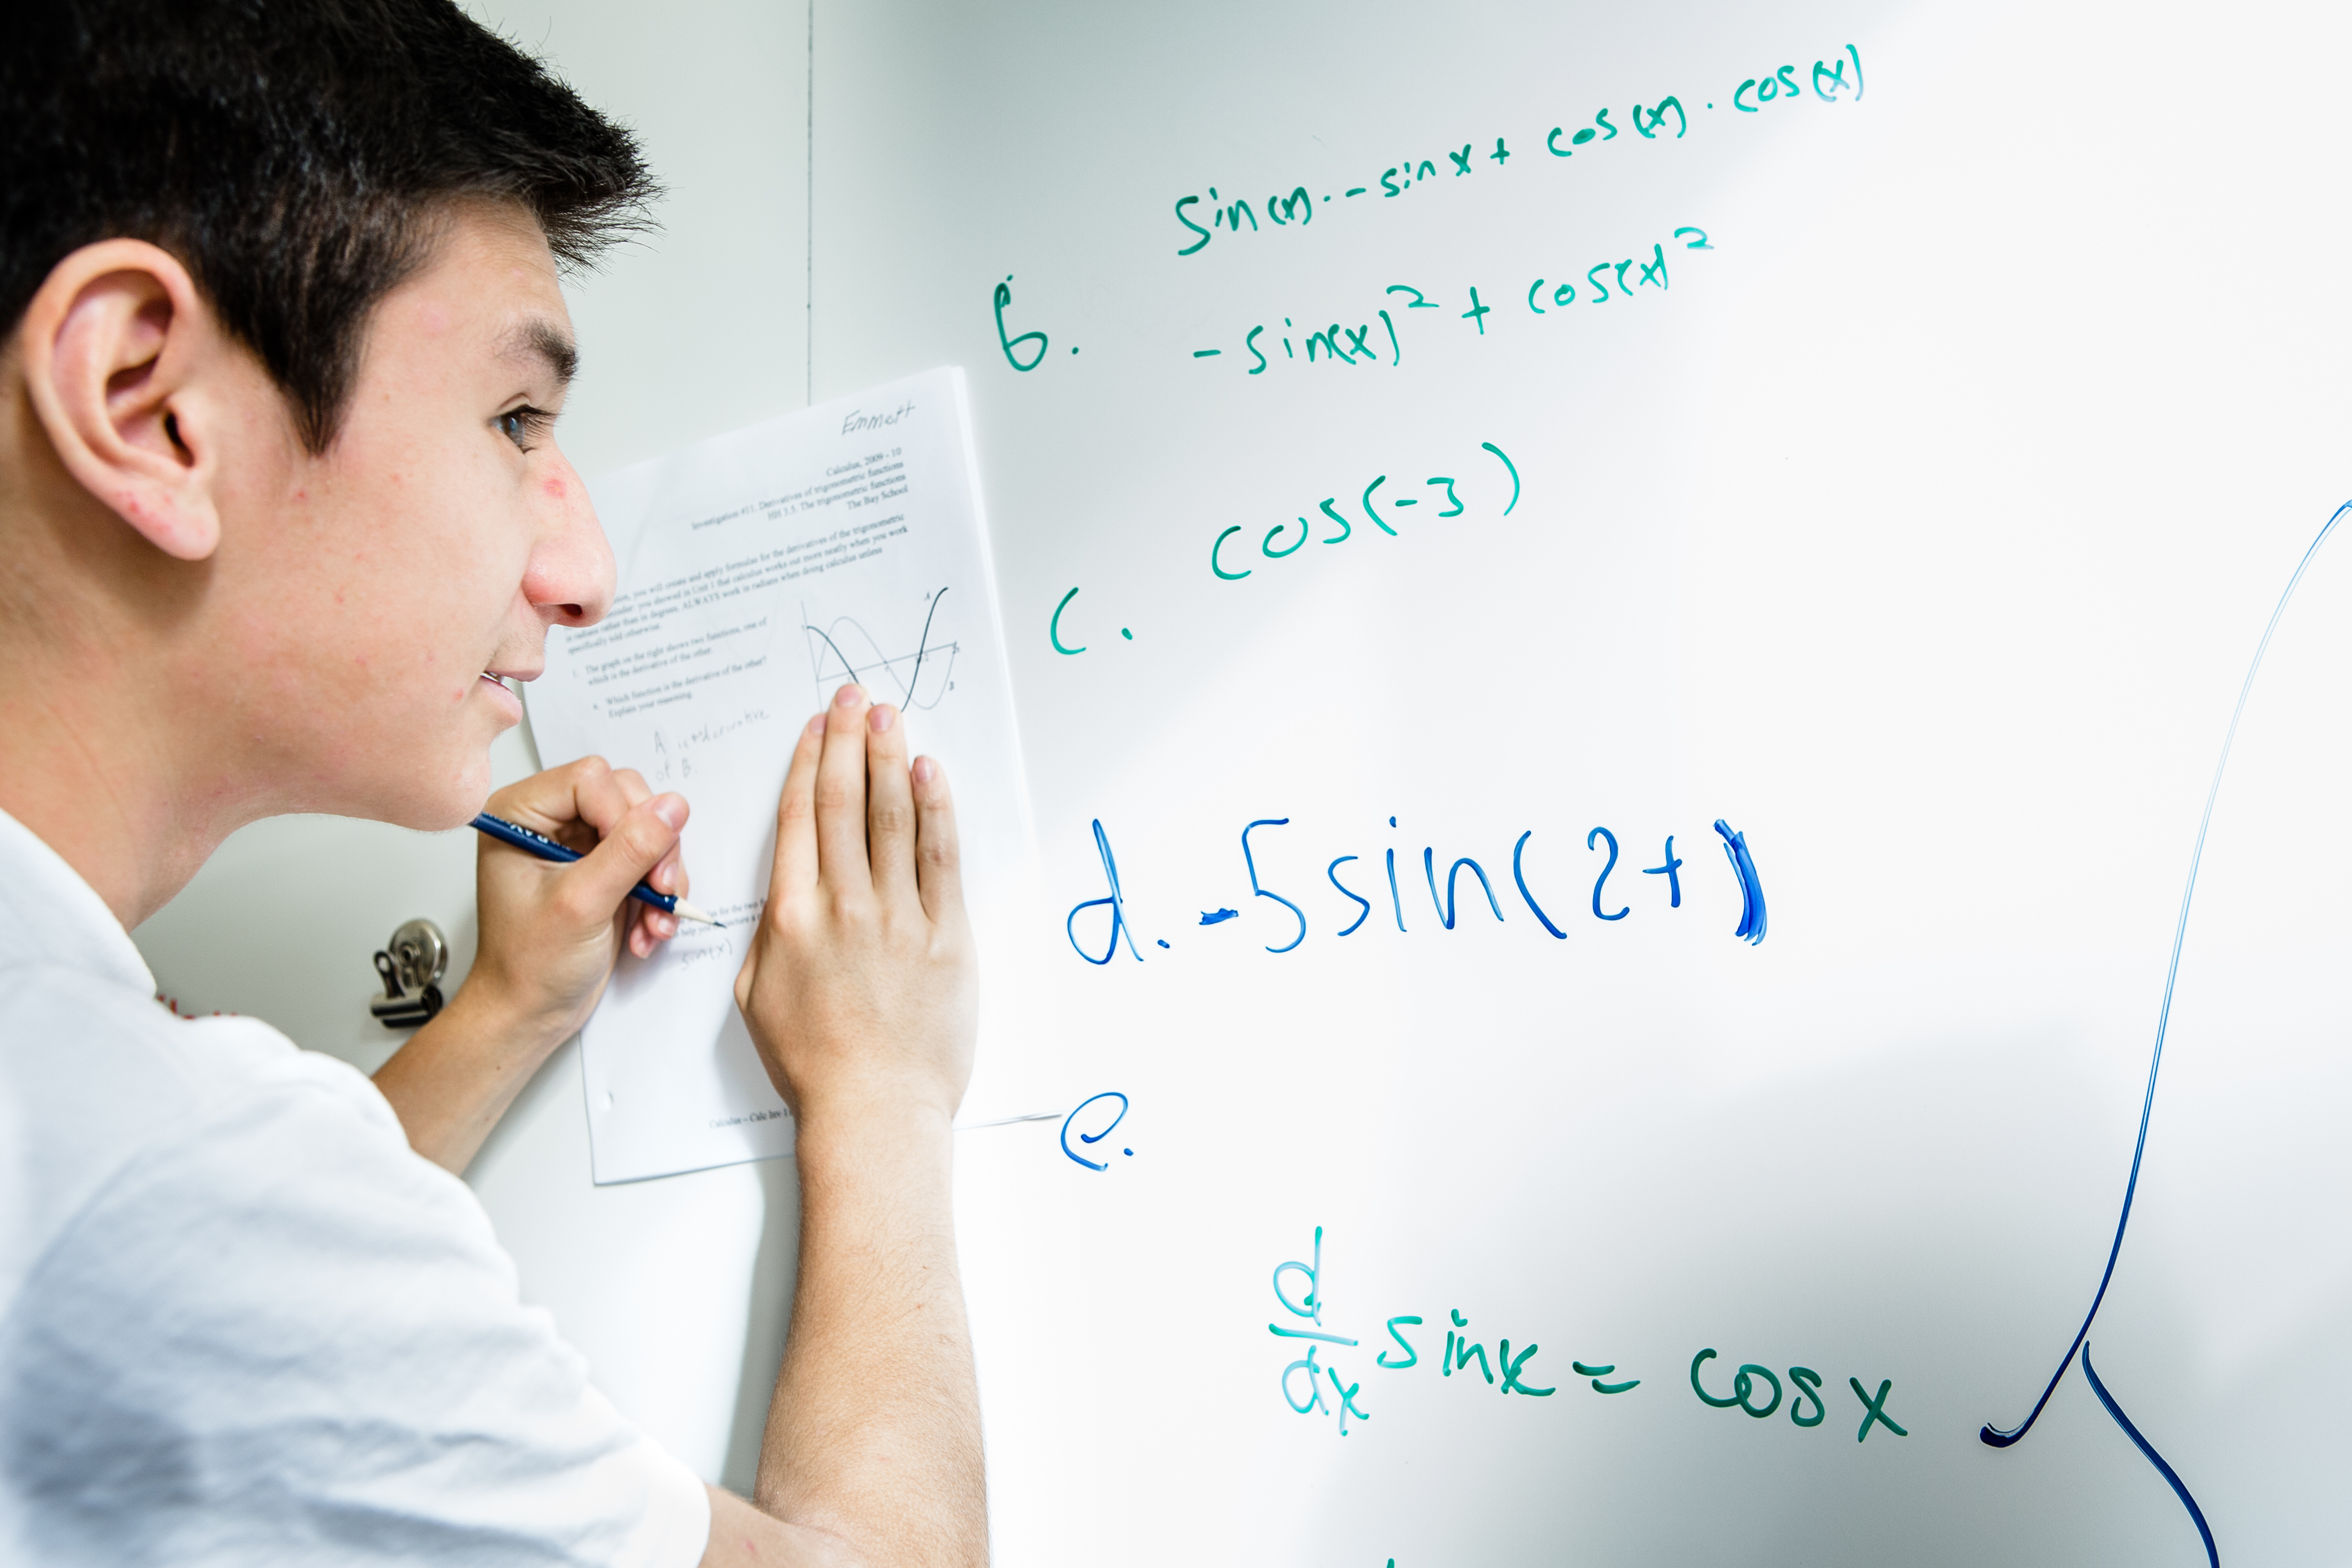 Emmett
Calculus, 2009 - 10
Investigation #11. Derivatives of trigonometric functions
HH 3.5. The trigonometric functions
The Bay School
you will create and apply formulas for the derivatives of the trigonometric
you showed in Unit 1 that calculus works out more neatly when you work
in radians rather than in degrees. ALWAYS work in radians when doing calculus unless
specifically told otherwise.
1. The graph on the right shows two functions, one of
which is the derivative of the other.
a. Which function is the derivative of the other?
Explain your reasoning.
A
B
A is derivative
of B.
for the two
help you
sin(x)
Calculus – Calc Inv 11
sin(x) · - sin x + cos(x) · cos(x)
B. - sin(x)² + cos(x)²
C. cos(-3)
d. -5 sin(2t)
e.
d/dx sin x = cos x